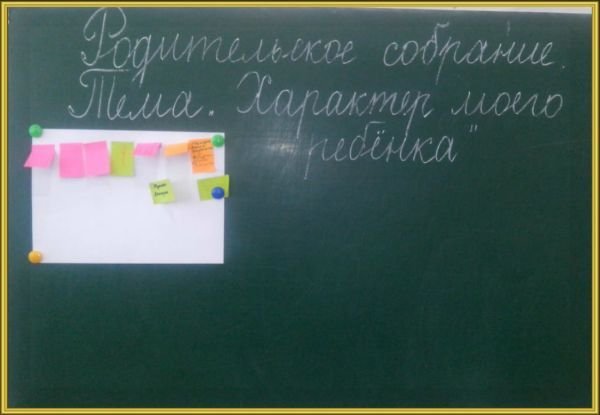 Родительское собрание.
Тема „Характер моего
ребёнка"